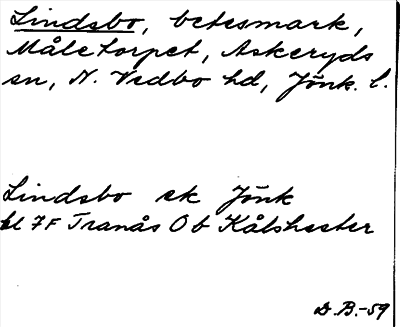 Lindsbo, betesmark,
Måletorpet, Askeryds
sn, N. Vedbo hd, Jönk. l.
Lindsbo ek Jönk
bl 7F Tranås Ob Kålshester
D.B.-59